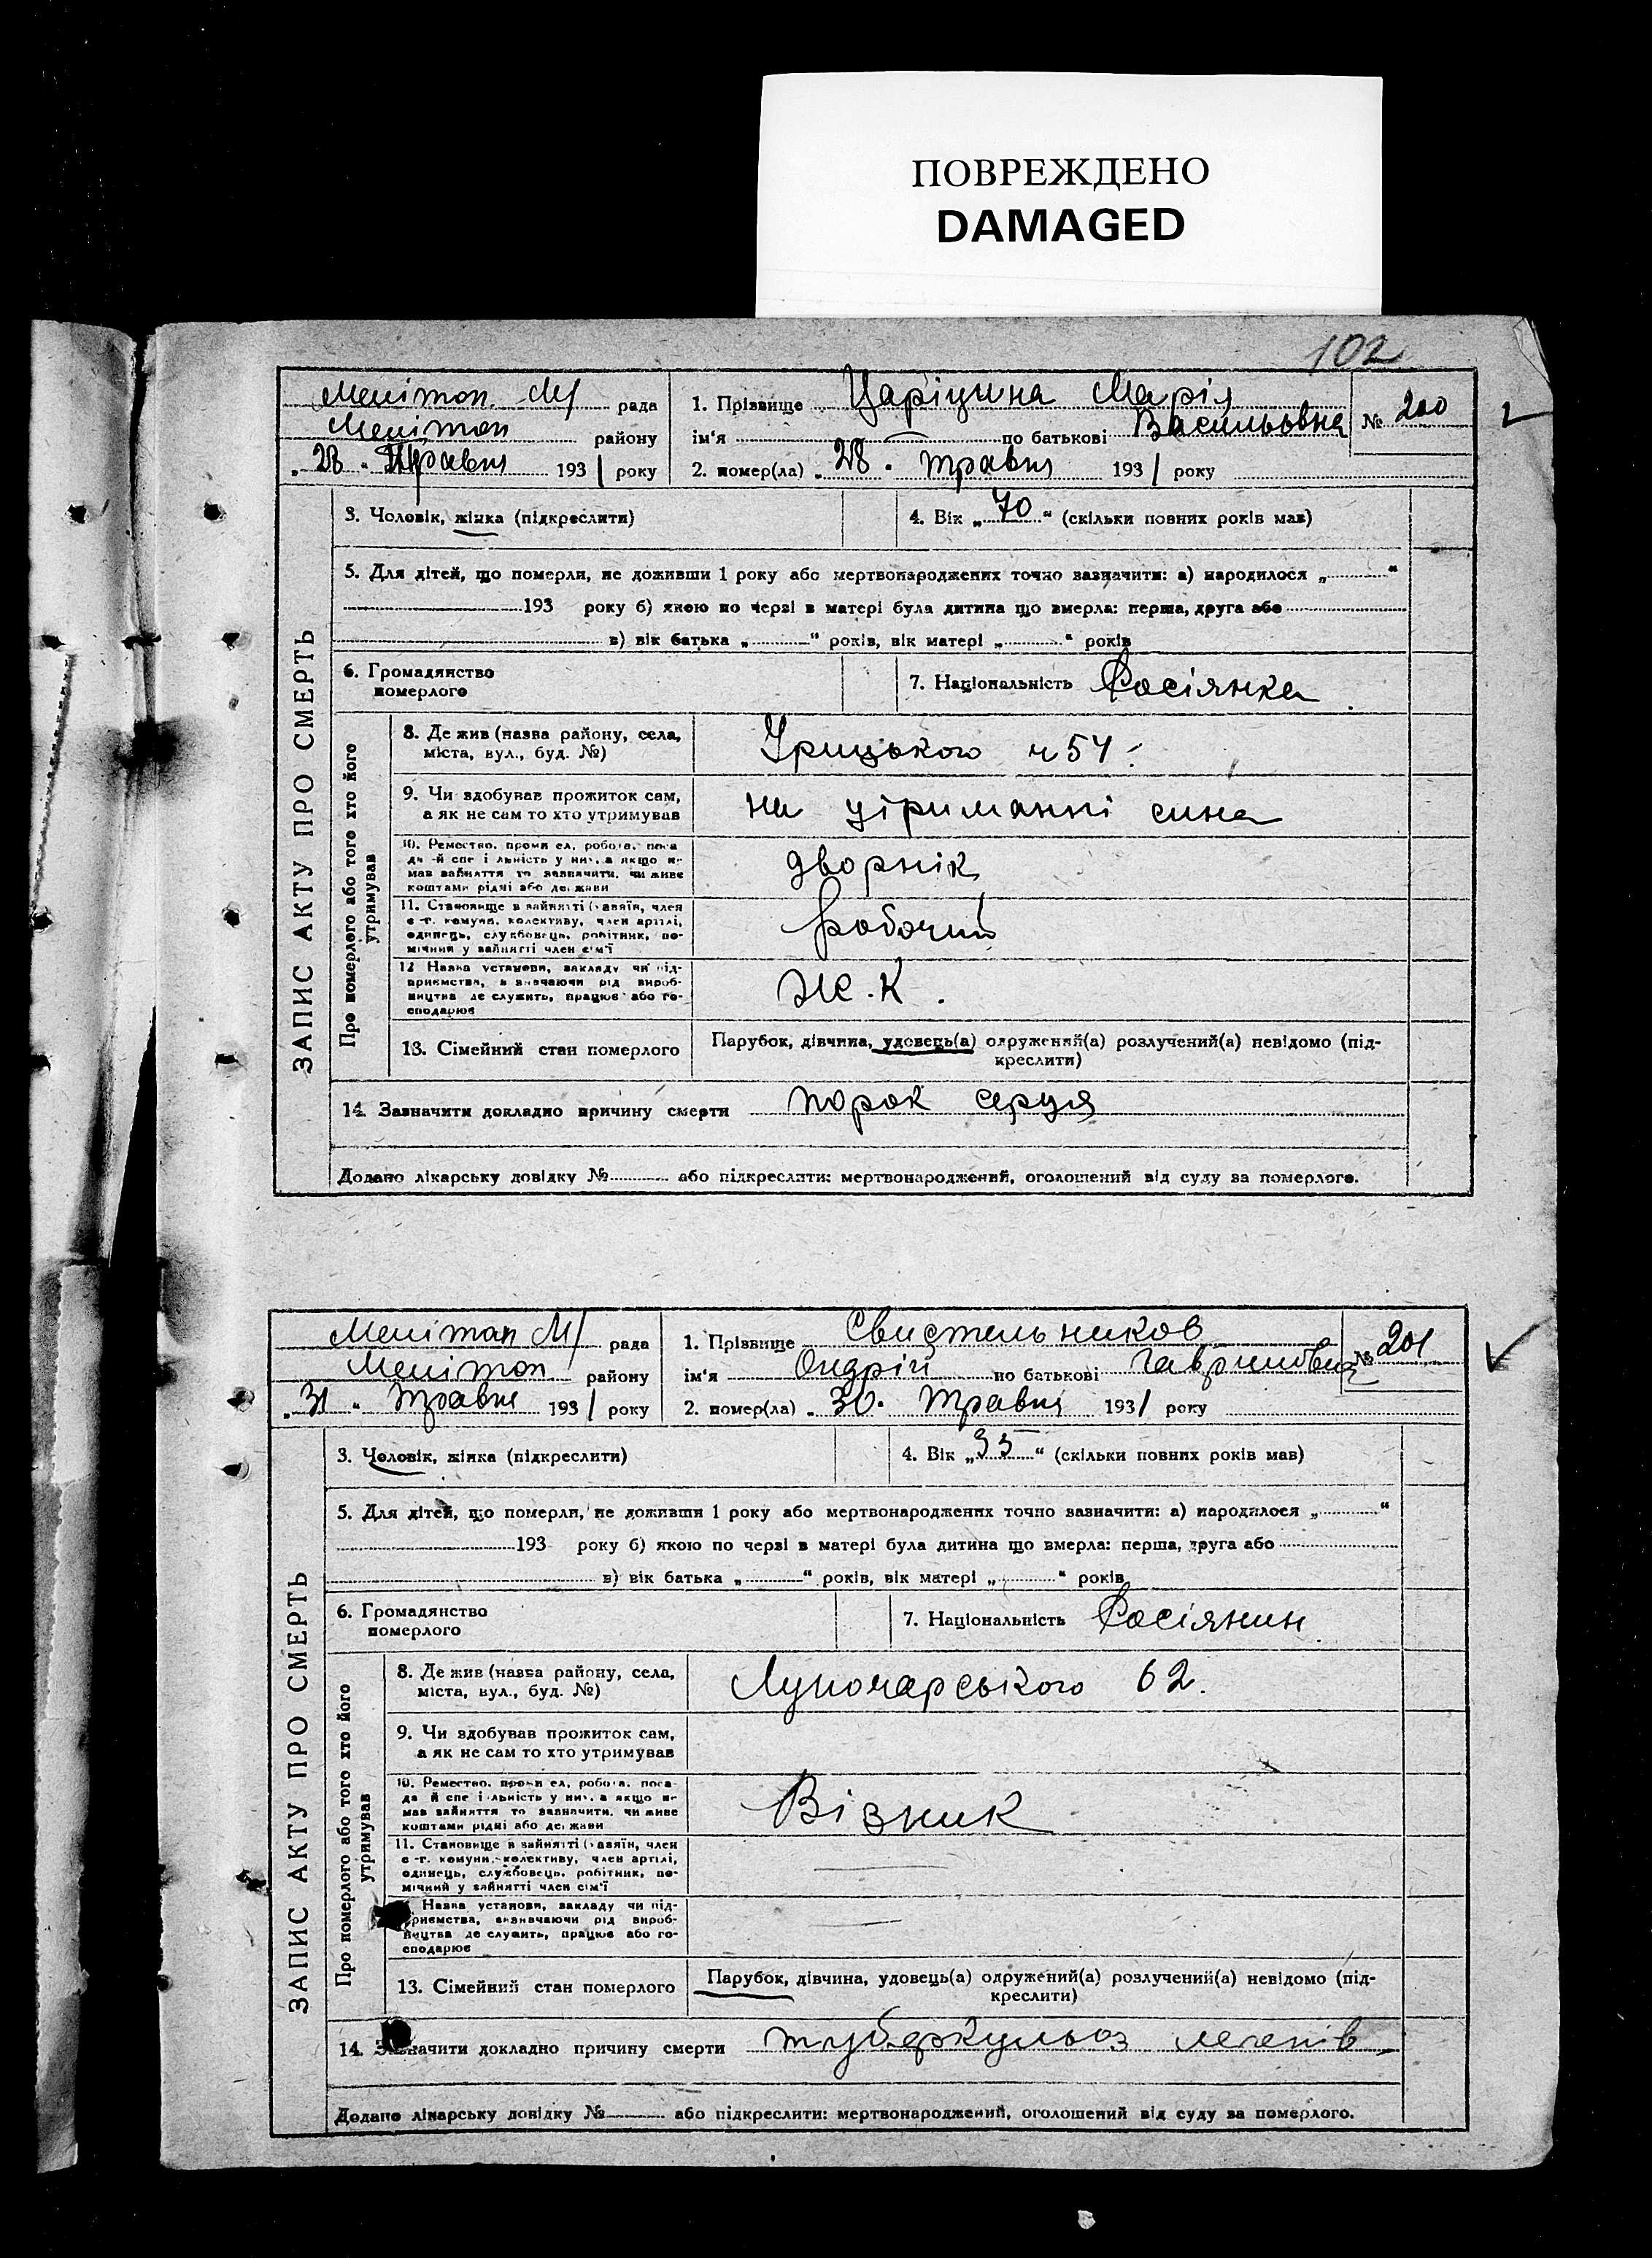 ПОВРЕЖДЕНО
DAMAGED
102
Мелітоп. М/ рада
Мелітоп району
„28“ Травня 1931 року
1. Прізвище Царіцина Марія
ім'я по батькові Васильовна
№ 200
2. помер(ла) „28“ травня 1931 року
ЗАПИС АКТУ ПРО СМЕРТЬ
3. Чоловік, жінка (підкреслити)
4. Вік „70“ (скільки повних років мав)
5. Для дітей, що померли, не доживши 1 року або мертвонароджених точно зазначити: а) народилося „ “
193 року б) якою по черзі в матері була дитина що вмерла: перша, друга або
в) вік батька „ “ років, вік матері „ “ років
6. Громадянство
померлого
7. Національність Росіянка
Про померлого або того хто його
утримував
8. Де жив (назва району, села,
міста, вул., буд. №)
Урицького ч 54
9. Чи здобував прожиток сам,
а як не сам то хто утримував
на утриманні сина
10. Ремество, промисел, робота, поса-
да й спеціальність у них, а якщо не
мав зайняття то зазначити, чи живе
коштами рідні або держави
дворнік
11. Становище в зайнятті (хазяїн, член
с-г. комуни, колективу, член артілі,
одинець, службовець, робітник, по-
мічний у зайнятті член сім'ї
робочий
12 Назва установи, закладу чи під-
приємства, зазначаючи рід вироб-
ництва де служить, працює або го-
сподарює
Ж.К.
13. Сімейний стан померлого
Парубок, дівчина, удовець(а) одружений(а) розлучений(а) невідомо (під-
креслити)
14. Зазначити докладно причину смерти порок серця
Додано лікарську довідку № або підкреслити: мертвонароджений, оголошений від суду за померлого.
Мелітоп М/ рада
Мелітоп району
„31“ Травня 1931 року
1. Прізвище Свистельников
ім'я Ондрій по батькові Гаврилович
№ 201
2. помер(ла) „30“ Травня 1931 року
ЗАПИС АКТУ ПРО СМЕРТЬ
3. Чоловік, жінка (підкреслити)
4. Вік „35“ (скільки повних років мав)
5. Для дітей, що померли, не доживши 1 року або мертвонароджених точно зазначити: а) народилося „ “
193 року б) якою по черзі в матері була дитина що вмерла: перша, друга або
в) вік батька „ “ років, вік матері „ “ років
6. Громадянство
померлого
7. Національність Росіянин
Про померлого або того хто його
утримував
8. Де жив (назва району, села,
міста, вул., буд. №)
Луночарського 62.
9. Чи здобував прожиток сам,
а як не сам то хто утримував
10. Ремество, промисел, робота, поса-
да й спеціальність у них, а якщо не
мав зайняття то зазначити, чи живе
коштами рідні або держави
Візник
11. Становище в зайнятті (хазяїн, член
с-г. комуни, колективу, член артілі,
одинець, службовець, робітник, по-
мічний у зайнятті член сім'ї
Назва установи, закладу чи під-
приємства, зазначаючи рід вироб-
ництва де служить, працює або го-
сподарює
13. Сімейний стан померлого
Парубок, дівчина, удовець(а) одружений(а) розлучений(а) невідомо (під-
креслити)
14. Зазначити докладно причину смерти туберкульоз легенів
Додано лікарську довідку № або підкреслити: мертвонароджений, оголошений від суду за померлого.